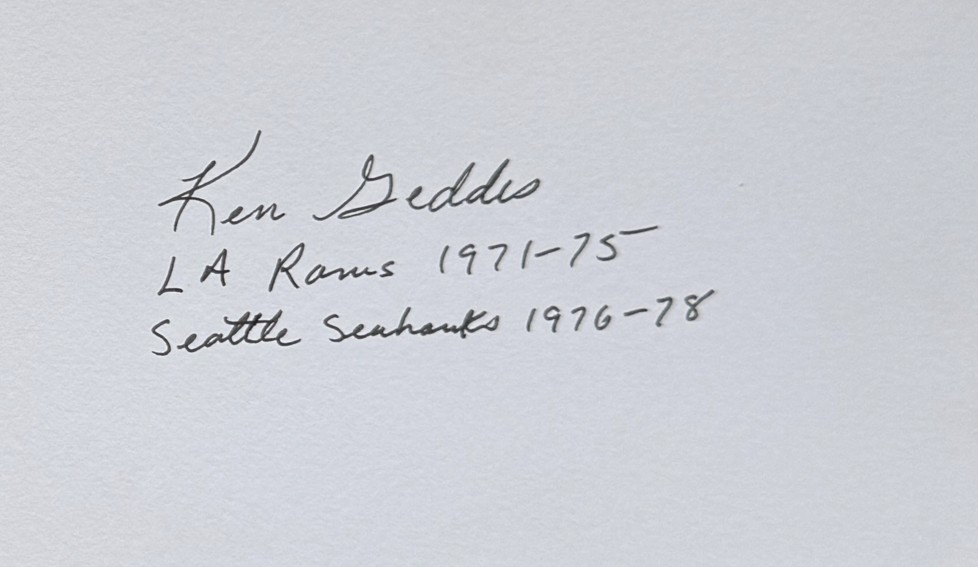 Ken Geddes
LA Rams 1971-75
Seattle Seahawks 1976-78